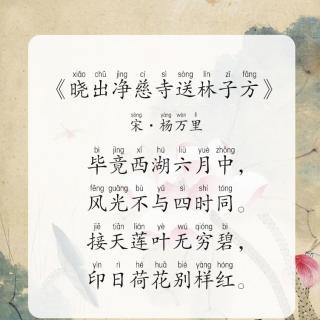 xiǎo chū jìng cí sì sòng lín zǐ fāng
《晓出净慈寺送林子方》
sòng yáng wàn lǐ
宋·杨万里
bì jìng xī hú liù yuè zhōng
毕竟西湖六月中，
fēng guāng bù yǔ sì shí tóng
风光不与四时同。
jiē tiān lián yè wú qióng bì
接天莲叶无穷碧，
yìn rì hé huā bié yàng hóng
印日荷花别样红。